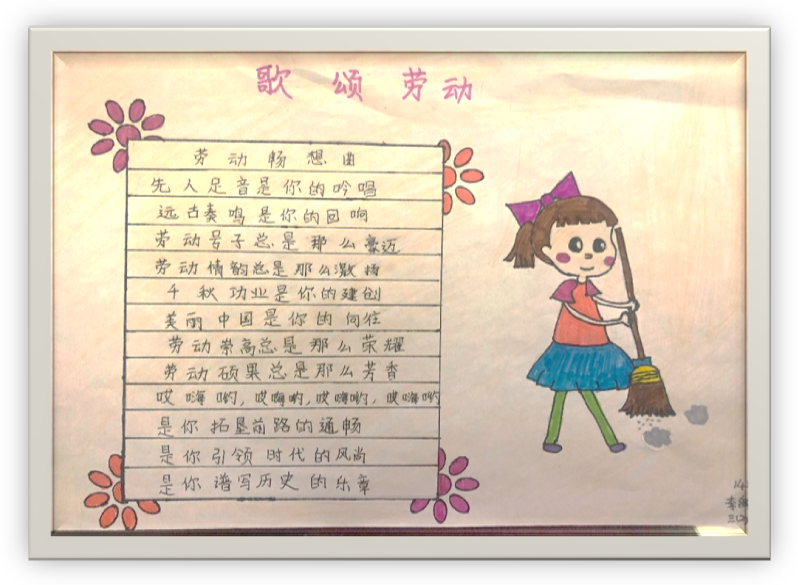 歌颂劳动
劳动畅想曲
先人足音是你的吟唱
远古奏鸣是你的回响
劳动号子总是那么豪迈
劳动情韵总是那么激扬
千秋功业是你的建创
美丽中国是你的向往
劳动崇高总是那么荣耀
劳动硕果总是那么芳香
哎嗨哟，哎嗨哟，哎嗨哟，哎嗨哟
是你拓垦前路的通畅
是你引领时代的风尚
是你谱写历史的乐章